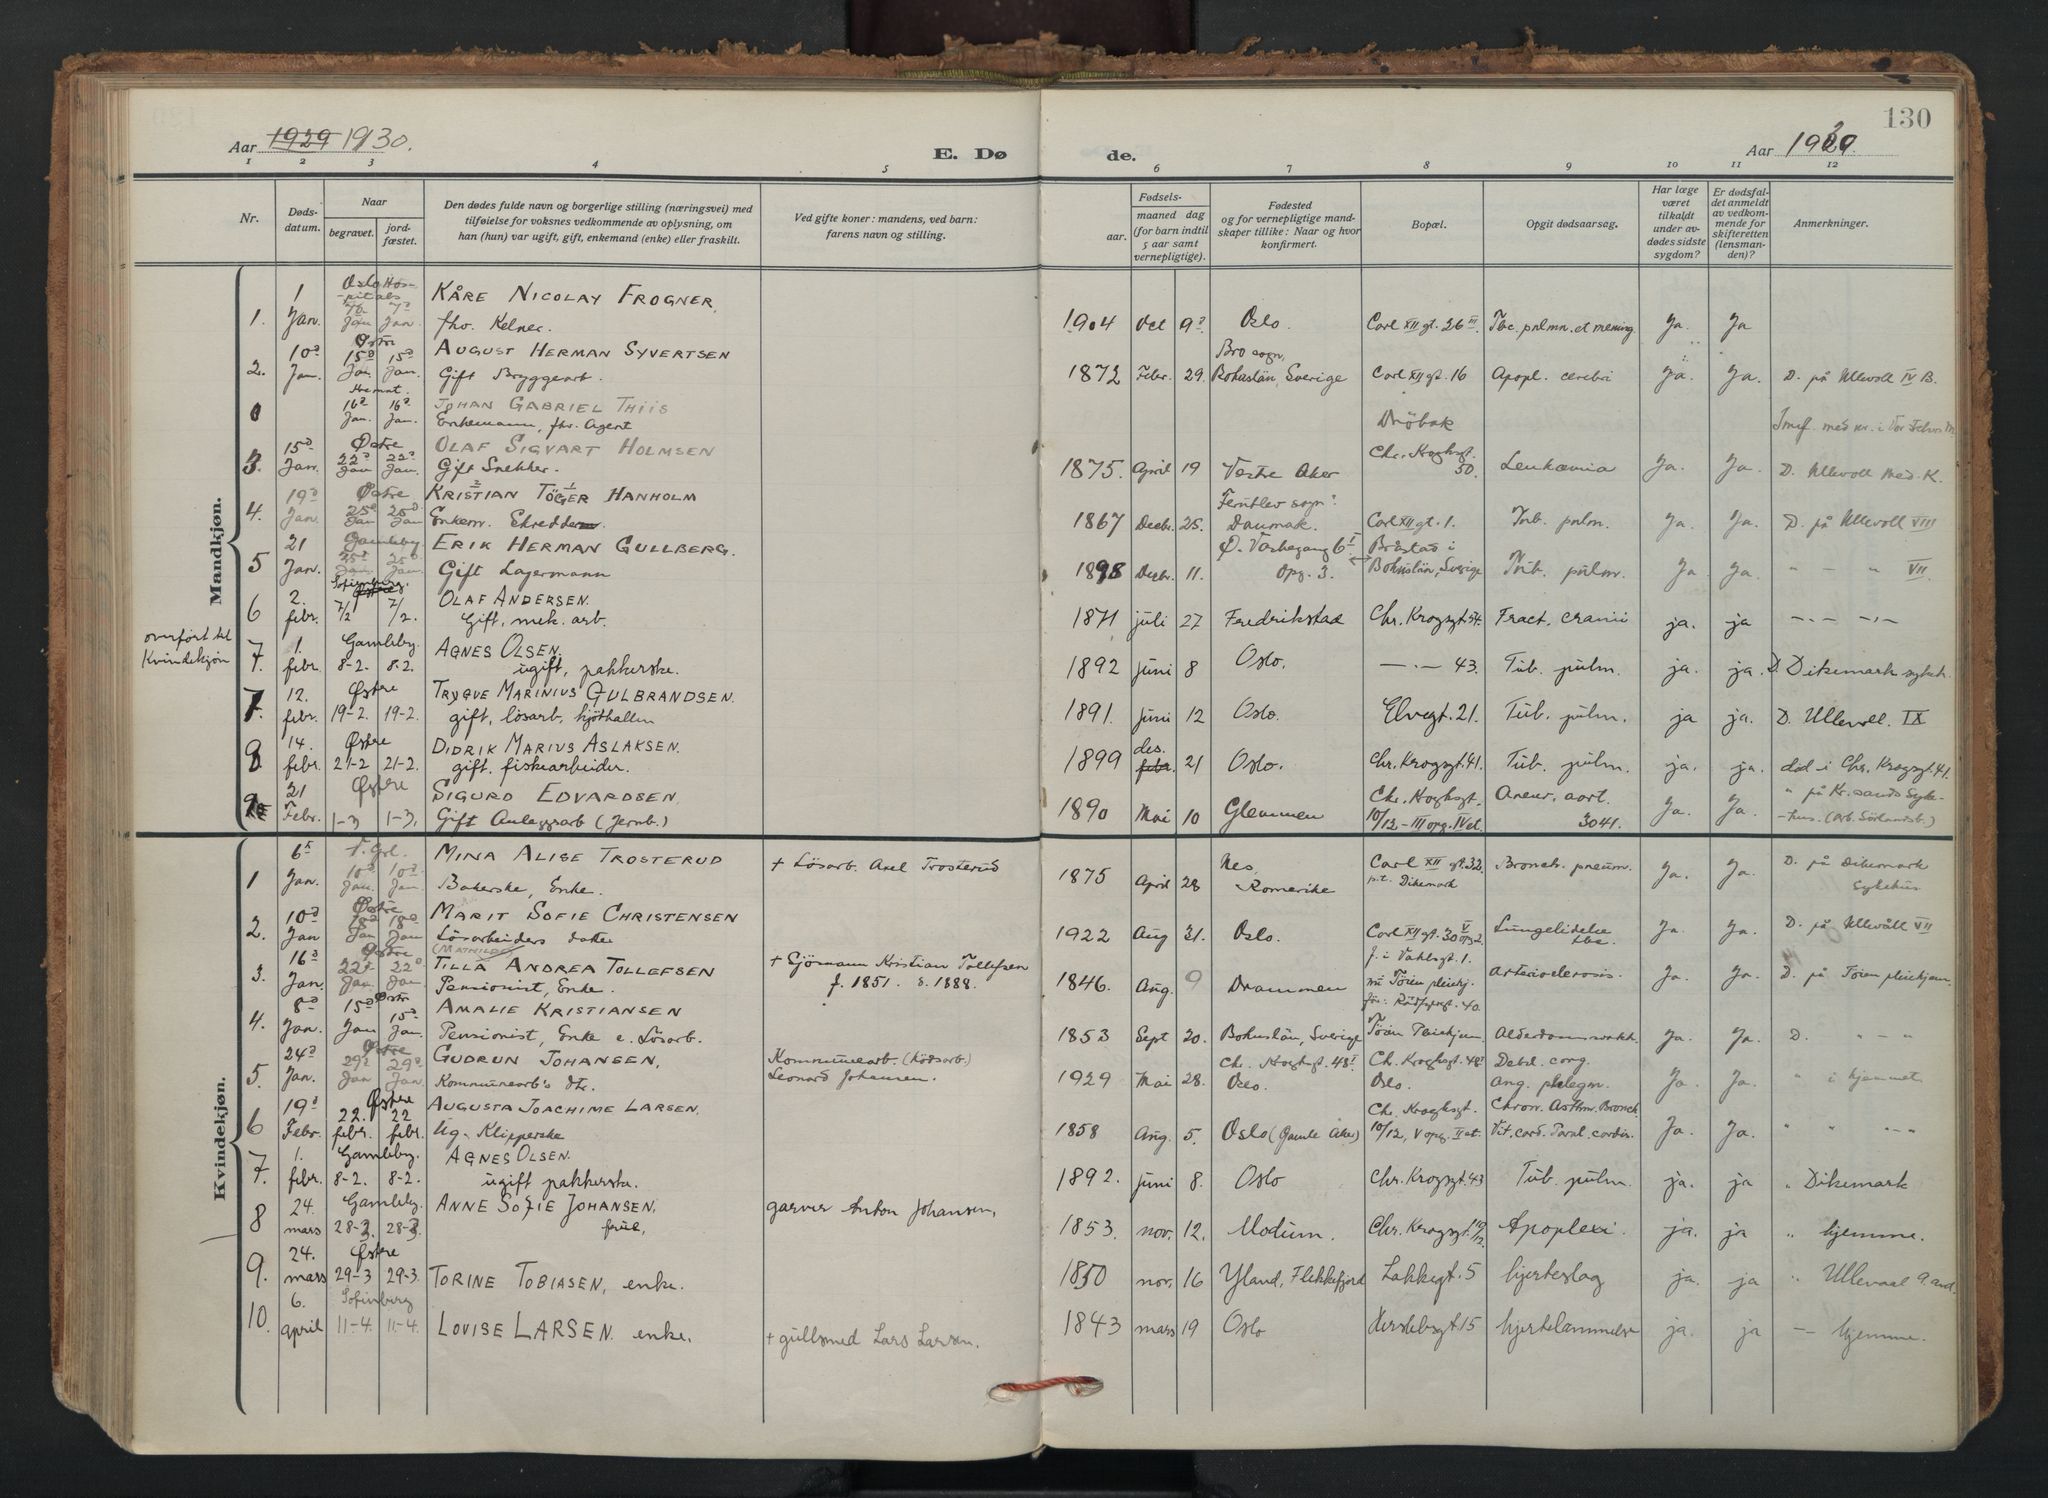 130
Aar 1929 1930.
E. Dø
de.
Aar 1930.
1 2 3 4 5 6 7 8 9 10 11 12
Nr.
Døds-
datum.
Naar
begravet.
jord-
fæstet.
Den dødes fulde navn og borgerlige stilling (næringsvei) med
tilføielse for voksnes vedkommende av oplysning, om
han (hun) var ugift, gift, enkemand (enke) eller fraskilt.
Ved gifte koner: mandens, ved barn:
farens navn og stilling.
Fødsels-
aar.
maaned
dag
(for barn indtil
5 aar samt
vernepligtige).
Fødested
og for vernepligtige mand-
skaper tillike: Naar og hvor
konfirmert.
Bopæl.
Opgit dødsaarsag.
Har læge
været
tilkaldt
under av-
dødes sidste
sygdom?
Er dødsfal-
det anmeldt
av vedkom-
mende for
skifteretten
(lensman-
den)?
Anmerkninger.
Mandkjøn.
1 Oslo Hos-
pitals KÅRE NICOLAY FROGNER,
1. Jan. Jan Jan. fhv. Kelner. 1904 Oct 9d Oslo. Carl XII gt. 26 III. Tbc. pulm. et mening. Ja. Ja
10d Østre AUGUST HERMAN SYVERTSEN Bro sogn,
2. Jan. 15d Jan. 15d Jan. Gift Bryggearb. 1872 Febr. 29. Bohuslän, Sverige Carl XII gt. 16 Apopl. cerebri Ja. Ja. D. på Ullevoll IV B.
0 16d Jan. 16d Jan. JOHAN GABRIEL THIIS
Enkemann, fhv. Agent Drøbak
15d Østre OLAF SIGVART HOLMSEN Chr. Kroghsgt.
3. Jan. 22d Jan 22d Jan. Gift Snekker. 1875 April 19 Vestre Aker 50. Leukæmia Ja. Ja. D. Ullevoll Med. K.
19d Østre KRISTIAN TÖGER HANHOLM
4. Jan. 25d Jan 25d Jan Enkem. 1867 Decbr. 25. Danmak. Carl XII gt. 1. Tub. pulm. Ja. Ja. D. på Ullevoll VIII
21 Gamleby. ERIK HERMAN GULLBERG.
5 Jan. 25d Jan. 25d Jan. Gift Lagermann 1898 Decbr. 11. Opg. 3. Bohuslän, Sverige Tub. pulm. Ja Ja. " – " VII
2. Sofienberg OLAF ANDERSEN.
6 febr. 7/2 7/2. Gift, mek. arb. 1871 juli 27 Fredrikstad Chr. Krogsgt. 54. Fract. cranii ja. ja –.– –.–
overført til
Kvindekjøn
1. Gamleby. AGNES OLSEN.
7. febr. 8-2. 8-2. ugift, pakkerske. 1892 juni 8 Oslo. –.– 43. Tub. pulm. ja. ja. D. Dikemark sykeh.
12. Østre TRYGVE MARINIUS GULBRANDSEN.
7. febr. 19-2. 19-2. gift, løsarb. kjøthallen 1891. juni 12 Oslo. Elvegt. 21. Tub. pulm. ja ja. D. Ullevoll. IX
14. Østre DIDRIK MARIUS ASLAKSEN. des.
8 febr. 21-2 21-2. gift. fiskearbeider. 1899 febr. 21 Oslo. Chr. Krogsgt. 41. Tub. pulm. ja. ja. død i Chr. Krogsgt. 41.
21 Østre SIGURD EDVARDSEN, Chr. Kroghsgt. Aneur. aort. " på Kr.sands Syke-
9. Febr. 1-3 1-3. Gift Anleggsarb (Jernb.) 1890 Mai 10 Glemmen 10/12 – III opg. IV et. 3041. Ja. Ja. -hus. (arb. Sörlandsb.)
Kvindekjøn.
6t V. Grl. MINA ALISE TROSTERUD + Lösarb. Axel Trosterud
1 Jan. 10d Jan. 10d Jan Bakerske, Enke. 1875 April 28 Nes, Romerike Carl XII gt. 32. p.t. Dikemark Bronch. pneum. Ja. Ja. D. på Dikemark
Sykehus
10d Østre MARIT SOFIE CHRISTENSEN
2. Jan 18d Jan 18d Jan Lösarbeiders datter 1922 Aug 31. Oslo. Carl XII gt. 30 V opg 2. Lungelidelse tbc. Ja Ja. D. på Ullevåll VII
16d Østre (MATHILDE) f. i Vahlsgt. 1.
3. Jan. 22d Jan. 22d Jan. TILLA ANDREA TOLLEFSEN + Sjömann Kristian Tollefsen
Pensionist, Enke. f. 1851. d. 1888. 1846. Aug. 9 Drammen nu Töien pleiehj. arteriosclerosis. Ja. Ja. D. på Töien pleiehjem
8d Østr AMALIE KRISTIANSEN
4. Jan. 15d Jan 15d Jan. Pensionist, Enke e. Lösarb. 1853 Sept 20. Bohuslän, Sverige Töien Pleiehjem Ja. Ja. D. " – "
24d Østre GUDRUN JOHANSEN, Kommunearb. Chr. Kroghgt. 48 I Ch. Kroghsgt. 48 I Debil. cong.
5. Jan. 29d Jan 29d Jan. Kommunearb's dtr. Leonard Johansen. 1929 Mai 28. Oslo. Oslo. Ang. phlegm. Ja Ja. " i hjemmet
19d Østre AUGUSTA JOACHIME LARSEN. Ch. Kroghsgt. Chron. Asthm. Bronch.
6 Febr. 22. febr. 22 febr. Ug. Klipperske 1858 Aug. 5. Oslo (Gamle Aker) 10/12, V opg. II et. Vit. cord. Paral. cordis. Ja. Ja. " " –"–
1. Gamleby. AGNES OLSEN.
7. febr. 8-2. 8-2. ugift pakkerske. 1892. juni 8. Oslo Chr. Krogsgt. 43 Tub. pulm. ja. ja " Dikemark
24. Gamleby ANNE SOFIE JOHANSEN, garver Anton Johansen,
8 mars 28-3. 28-3. frue, 1853. nov. 12. Modum. Chr. Krogsgt. 10/12. Apoplexi ja. ja " hjemme.
24. Østre
9. mars 29-3 29-3. TORINE TOBIASEN, enke. 1850 nov. 16 Yland, Flekkefjord Lakkegt. 5 hjerteslag ja. ja " Ullevaal 9. avd.
6. Sofienberg
10. april 11-4. 11-4. LOVISE LARSEN. enke. + gullsmed Lars Larsen. 1843 mars 19 Oslo Herslebsgt 15 hjertelammelse ja. ja – hjemme.